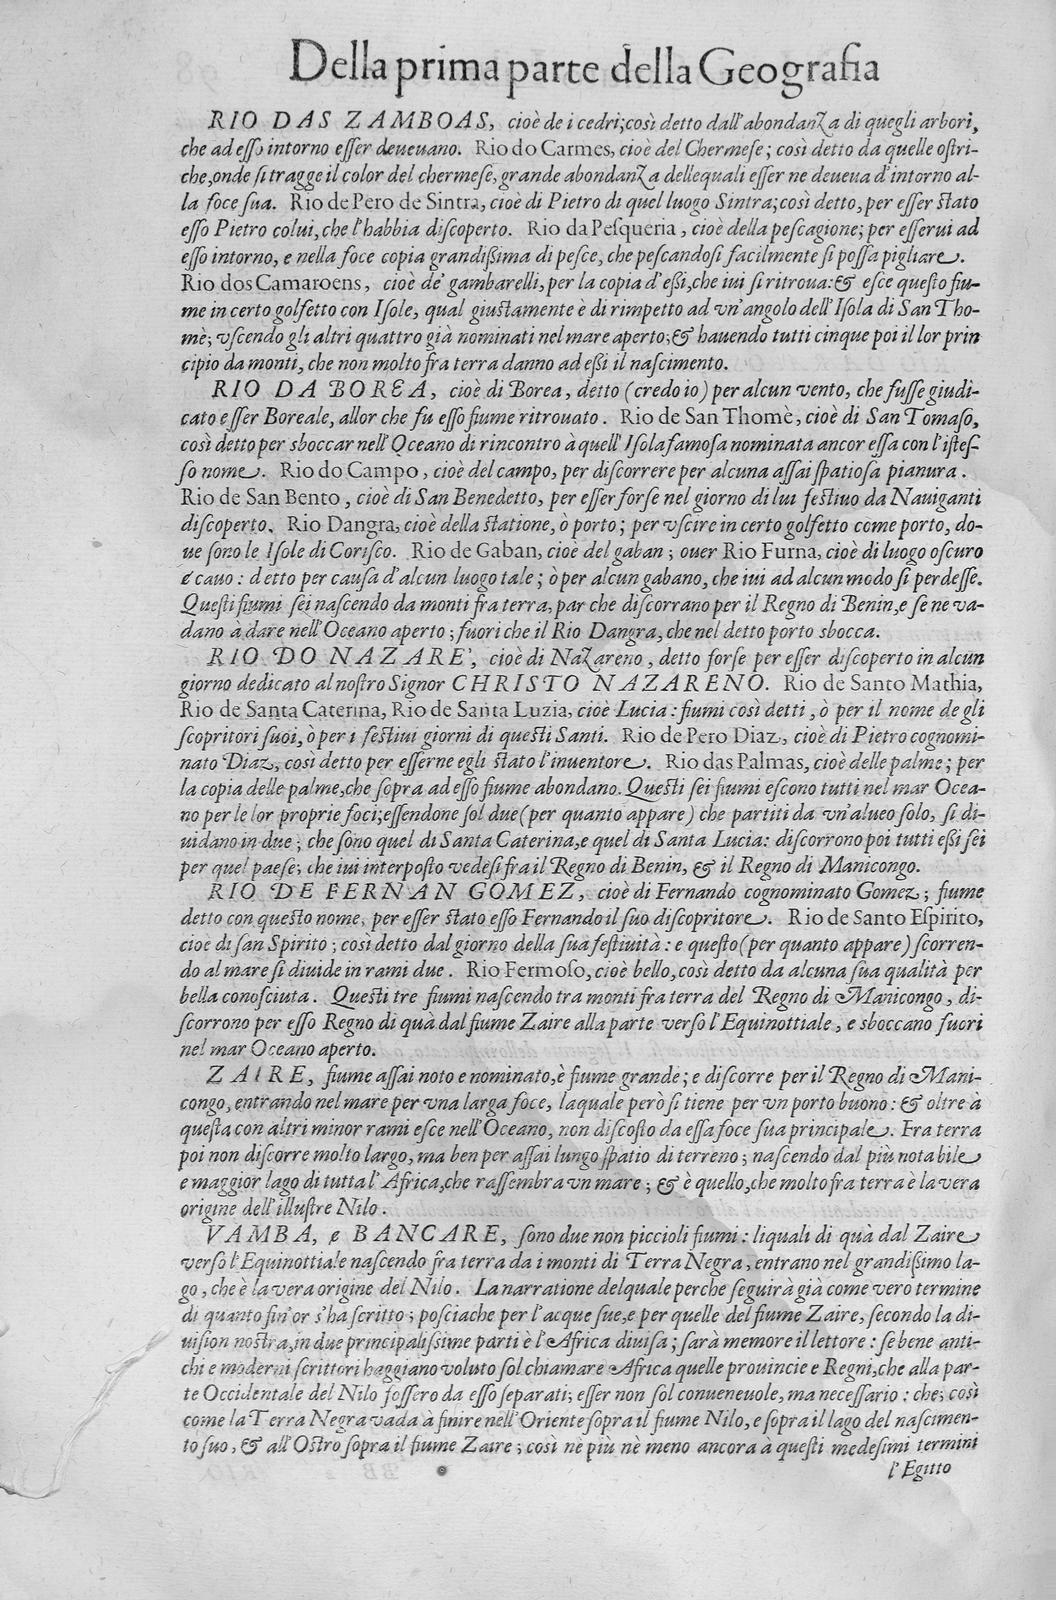 Della prima parte della Geografia
RIO DAS ZAMBOAS, cioè de i cedri; così detto dall'abondanza di quegli arbori,
che ad esso intorno esser deueuano. Rio do Carmes, cioè del Chermese; così detto da quelle ostri-
che, onde si tragge il color del chermese, grande abondanza delle quali esser ne deueua d'intorno al-
la foce sua. Rio de Pero de Sintra, cioè di Pietro di quel luogo Sintra; così detto, per esser stato
esso Pietro colui, che l'habbia discoperto. Rio da Pesqueria, cioè della pescagione; per esserui ad
esso intorno, e nella foce copia grandissima di pesce, che pescandosi facilmente si possa pigliare.
Rio dos Camaroens, cioè de' gambarelli, per la copia d'essi, che iui si ritroua: & esce questo fiu-
me in certo golfetto con Isole, qual giustamente è di rimpetto ad vn'angolo dell'Isola di San Tho-
mè; vscendo gli altri quattro già nominati nel mare aperto; & hauendo tutti cinque poi il lor prin
cipio da monti, che non molto fra terra danno ad essi il nascimento.
RIO DA BOREA, cioè di Borea, detto (credo io) per alcun vento, che fusse giudi-
cato esser Boreale, allor che fu esso fiume ritrouato. Rio de San Thomè, cioè di San Tomaso,
così detto per sboccar nell'Oceano di rincontro à quell'Isola famosa nominata ancor essa con l'istes-
so nome. Rio do Campo, cioè del campo, per discorrere per alcuna assai spatiosa pianura.
Rio de San Bento, cioè di San Benedetto, per esser forse nel giorno di lui festiuo da Nauiganti
discoperto. Rio Dangra, cioè della statione, ò porto; per vscire in certo golfetto come porto, do-
ue sono le Isole di Corisco. Rio de Gaban, cioè del gaban; ouer Rio Furna, cioè di luogo oscuro
e cauo: detto per causa d'alcun luogo tale; ò per alcun gabano, che iui ad alcun modo si perdesse.
Questi fiumi sei nascendo da monti fra terra, par che discorrano per il Regno di Benin, e se ne va-
dano à dare nell'Oceano aperto; fuori che il Rio Dangra, che nel detto porto sbocca.
RIO DO NAZARE', cioè di Nazareno, detto forse per esser discoperto in alcun
giorno dedicato al nostro Signor CHRISTO NAZARENO. Rio de Santo Mathia,
Rio de Santa Caterina, Rio de Santa Luzia, cioè Lucia: fiumi così detti, ò per il nome de gli
scopritori suoi, ò per i festiui giorni di questi Santi. Rio de Pero Diaz, cioè di Pietro cognomi-
nato Diaz, così detto per esserne egli stato l'inuentore. Rio das Palmas, cioè delle palme; per
la copia delle palme, che sopra ad esso fiume abondano. Questi sei fiumi escono tutti nel mar Ocea-
no per le lor proprie foci; essendone sol due (per quanto appare) che partiti da vn'alueo solo, si di-
uidano in due; che sono quel di Santa Caterina, e quel di Santa Lucia: discorrono poi tutti essi sei
per quel paese; che iui interposto vedesi fra il Regno di Benin, & il Regno di Manicongo.
RIO DE FERNAN GOMEZ, cioè di Fernando cognominato Gomez; fiume
detto con questo nome, per esser stato esso Fernando il suo discopritore. Rio de Santo Espirito,
cioè di san Spirito; così detto dal giorno della sua festiuità: e questo (per quanto appare) scorren-
do al mare si diuide in rami due. Rio Fermoso, cioè bello, così detto da alcuna sua qualità per
bella conosciuta. Questi tre fiumi nascendo tra monti fra terra del Regno di Manicongo, di-
scorrono per esso Regno di quà dal fiume Zaire alla parte verso l'Equinottiale, e sboccano fuori
nel mar Oceano aperto.
ZAIRE, fiume assai noto e nominato, è fiume grande; e discorre per il Regno di Mani-
congo, entrando nel mare per vna larga foce, laquale però si tiene per vn porto buono: & oltre à
questa con altri minor rami esce nell'Oceano, non discosto da essa foce sua principale. Fra terra
poi non discorre molto largo, ma ben per assai lungo spatio di terreno; nascendo dal più notabile
e maggior lago di tutta l'Africa, che rassembra vn mare; & è quello, che molto fra terra è la vera
origine dell'illustre Nilo.
VAMBA, e BANCARE, sono due non piccioli fiumi: liquali di quà dal Zaire
verso l'Equinottiale nascendo fra terra da i monti di Terra Negra, entrano nel grandissimo la-
go, che è la vera origine del Nilo. La narratione del quale perche seguirà già come vero termine
di quanto fin'or s'ha scritto; posciache per l'acque sue, e per quelle del fiume Zaire, secondo la di-
uision nostra, in due principalissime parti è l'Africa diuisa; sarà memore il lettore: se bene anti-
chi e moderni scrittori haggiano voluto sol chiamare Africa quelle prouincie e Regni, che alla par-
te Occidentale del Nilo fossero da esso separati; esser non sol conueneuole, ma necessario: che, così
come la Terra Negra vada à finire nell'Oriente sopra il fiume Nilo, e sopra il lago del nascimen-
to suo, & all'Ostro sopra il fiume Zaire; così nè più nè meno ancora à questi medesimi termini
l'Egitto